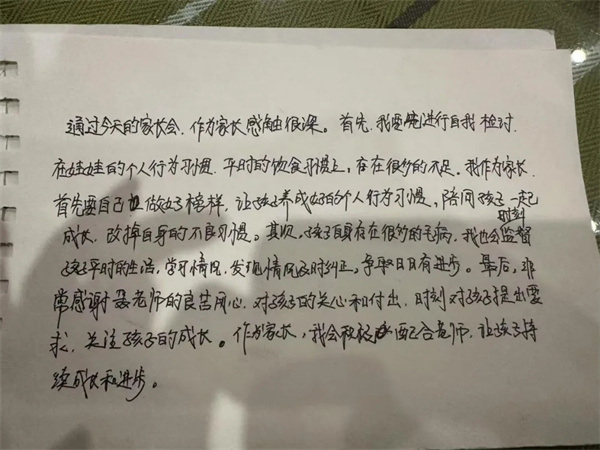 通过今天的家长会,作为家长感触很深。首先,我要先进行自我检讨,
在娃娃的个人行为习惯,平时的饮食习惯上,存在很多的不足。我作为家长,
首先要自己做好榜样,让孩子养成好的个人行为习惯,陪同孩子一起
成长,改掉自身的不良习惯。其次,孩子自身存在很多的毛病,我也会时刻监督
孩子平时的生活,学习情况,发现情况及时纠正,争取日日有进步。最后,非
常感谢老师的良苦用心,对孩子的关心和付出,时刻对孩子提出要
求,关注孩子的成长。作为家长,我会积极配合老师,让孩子持
续成长和进步。